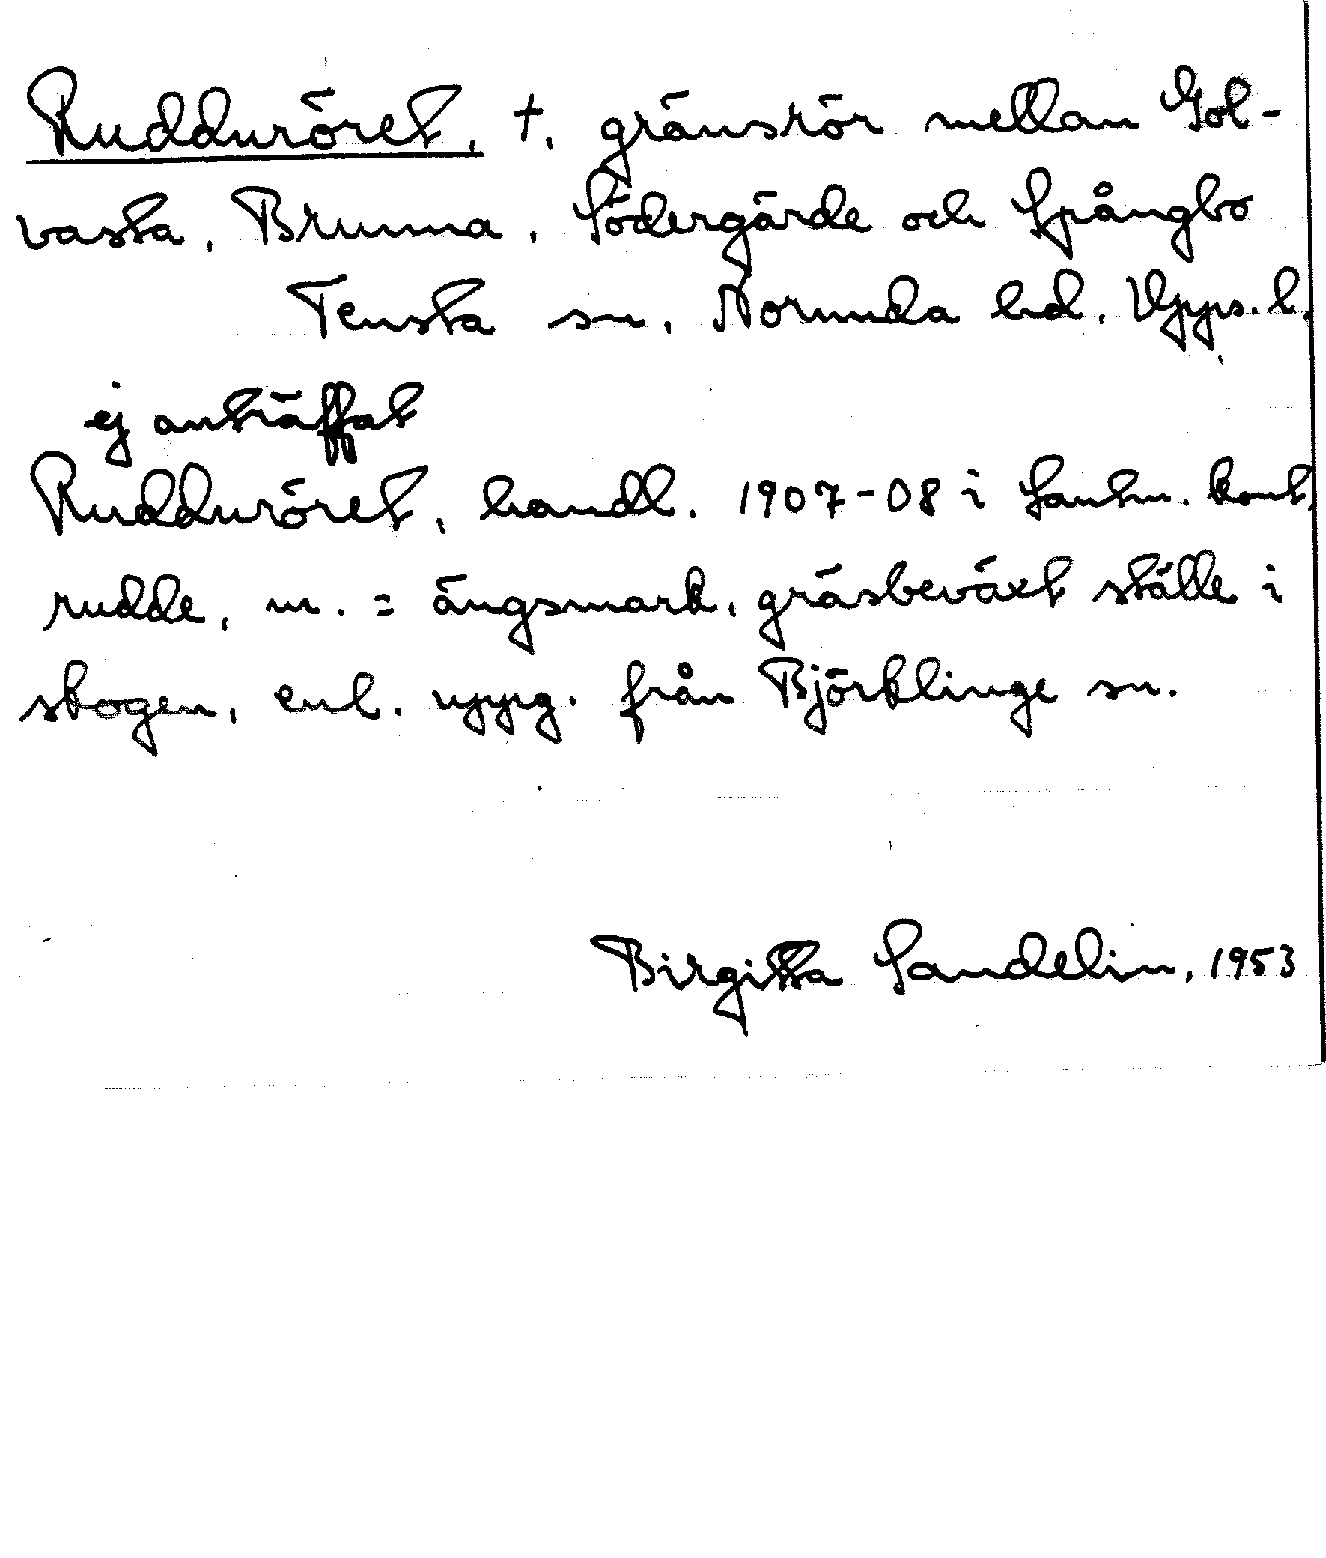 Rudduröret, †, gränsrör mellan Gol-
vasta, Brunna, Södergärde och Spångbo
Tensta sn, Norunda hd, Upps. l.
ej anträffat
Rudduröret, handl. 1907-08 i Lantm. kont,
rudde, m. = ängsmark, gräsbeväxt ställe i
skogen, enl. uppg. från Björklinge sn.
Birgitta Sandelin, 1953